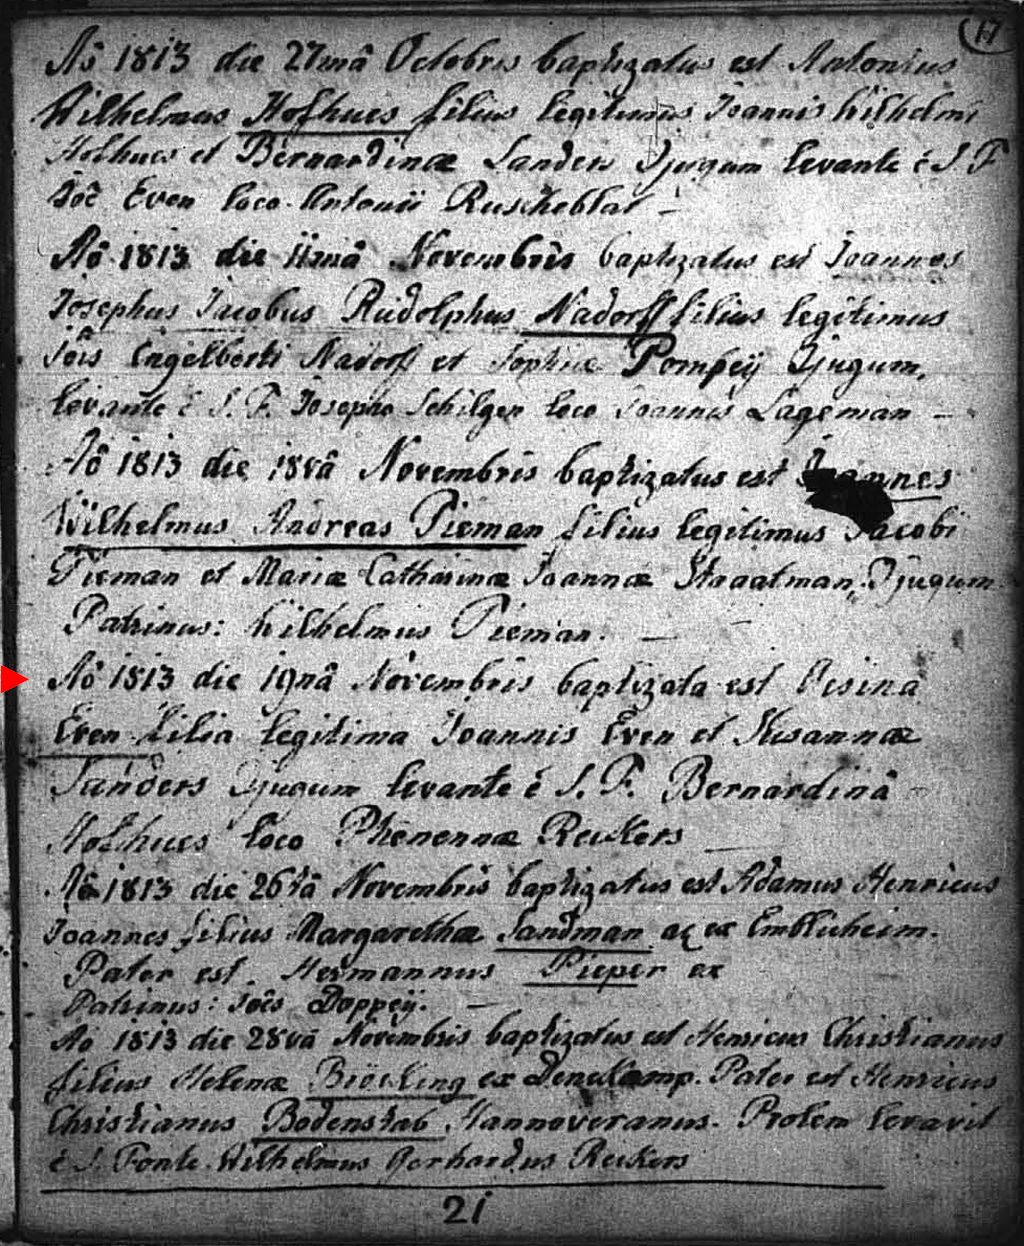 17
Aô 1813 die 27mâ Octobris baptizatus est Antonius
Wilhelmus Hofhues filius legitimus Joannis Wilhelmi
Hofhues et Bernardinæ Sanders Yjugum levante è S. F
Joê Even loco Antonii
Aô 1813 die Novembris baptizatus est Joannes
Josephus Jacobus Rudolphus Nadorff filius legitimus
Jôis Engelberti Nadorff et Sophiæ Pompeij Yjugum,
levante è S. F. Josepho Schilger loco Joannis Lageman -
Aô 1813 die 18vâ Novembris baptizatus est Joannes
Wilhelmus Andreas Pieman filius legitimus Jacobi
Pieman et Mariæ Catharinæ Joannæ Straatman, Yjugum
Patrinus: Wilhelmus Pieman. —
Aô 1813 die 19nâ Novembris baptizata est
Even filia legitima Joannis Even et Susannæ
Sanders Yjugum levante è S. F. Bernardinâ
Hofhues loco Phenennæ Reukers
Aô 1813 die 26tâ Novembris baptizatus est Adamus Henricus
Joannes filius Margarethæ Sandman ex Emblicheim.
Pater est Hermannus Pieper ex
Patrinus: Joês Doppeij. —
Aô 1813 die 28vâ Novembris baptizatus est Henricus Christianus
filius Helenæ Bröcking ex Denekamp. Pater est Henricus
Christianus Bodenstab Hannoveranus. Prolem levavit
è S. Fonte Wilhelmus Gerhardus Reukers
21